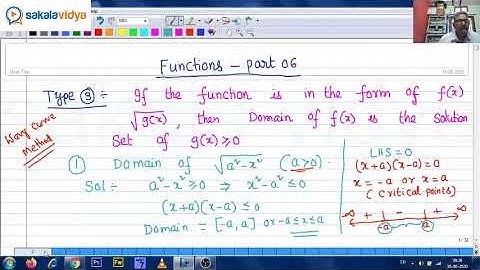 sakalavidya
Functions - part 06
Type ③ ÷ If the function is in the form of f(x)
√g(x), then Domain of f(x) is the Solution
Set of g(x) ≥ 0
Wavy Curve
Method
① Domain of √a²-x² (a>0)
Sol ÷ a²-x² ≥ 0 ⇒ x²-a² ≤ 0
(x+a)(x-a) ≤ 0
Domain = [-a, a] or -a ≤ x ≤ a
LHS = 0
(x+a)(x-a) = 0
x = -a or x = a
(Critical points)
-∞ + - + ∞
-a a